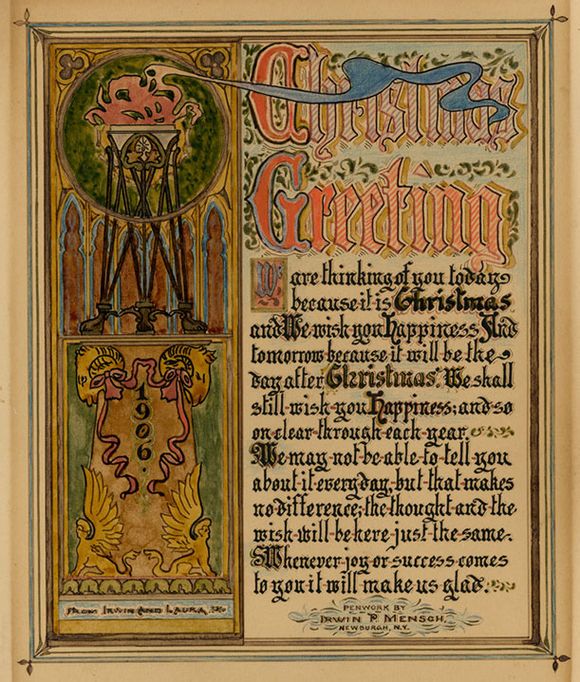 Christmas
Greeting
We are thinking of you today
because it is Christmas
and We wish you happiness. And
tomorrow because it will be the
day after Christmas. We shall
still wish you happiness; and so
on clear through each year.
We may not be able to tell you
about it every day, but that makes
no difference; the thought and the
wish will be here just the same.
Whenever joy or success comes
to you it will make us glad.
PENWORK BY
IRWIN P. MENSCH,
NEWBURGH, N.Y.
1906.
FROM IRWIN AND LAURA